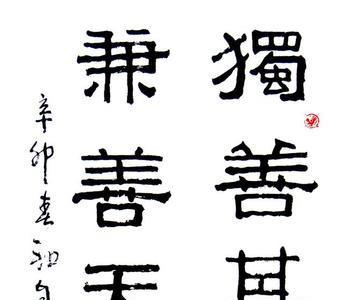 獨善其
兼善天
辛卯春